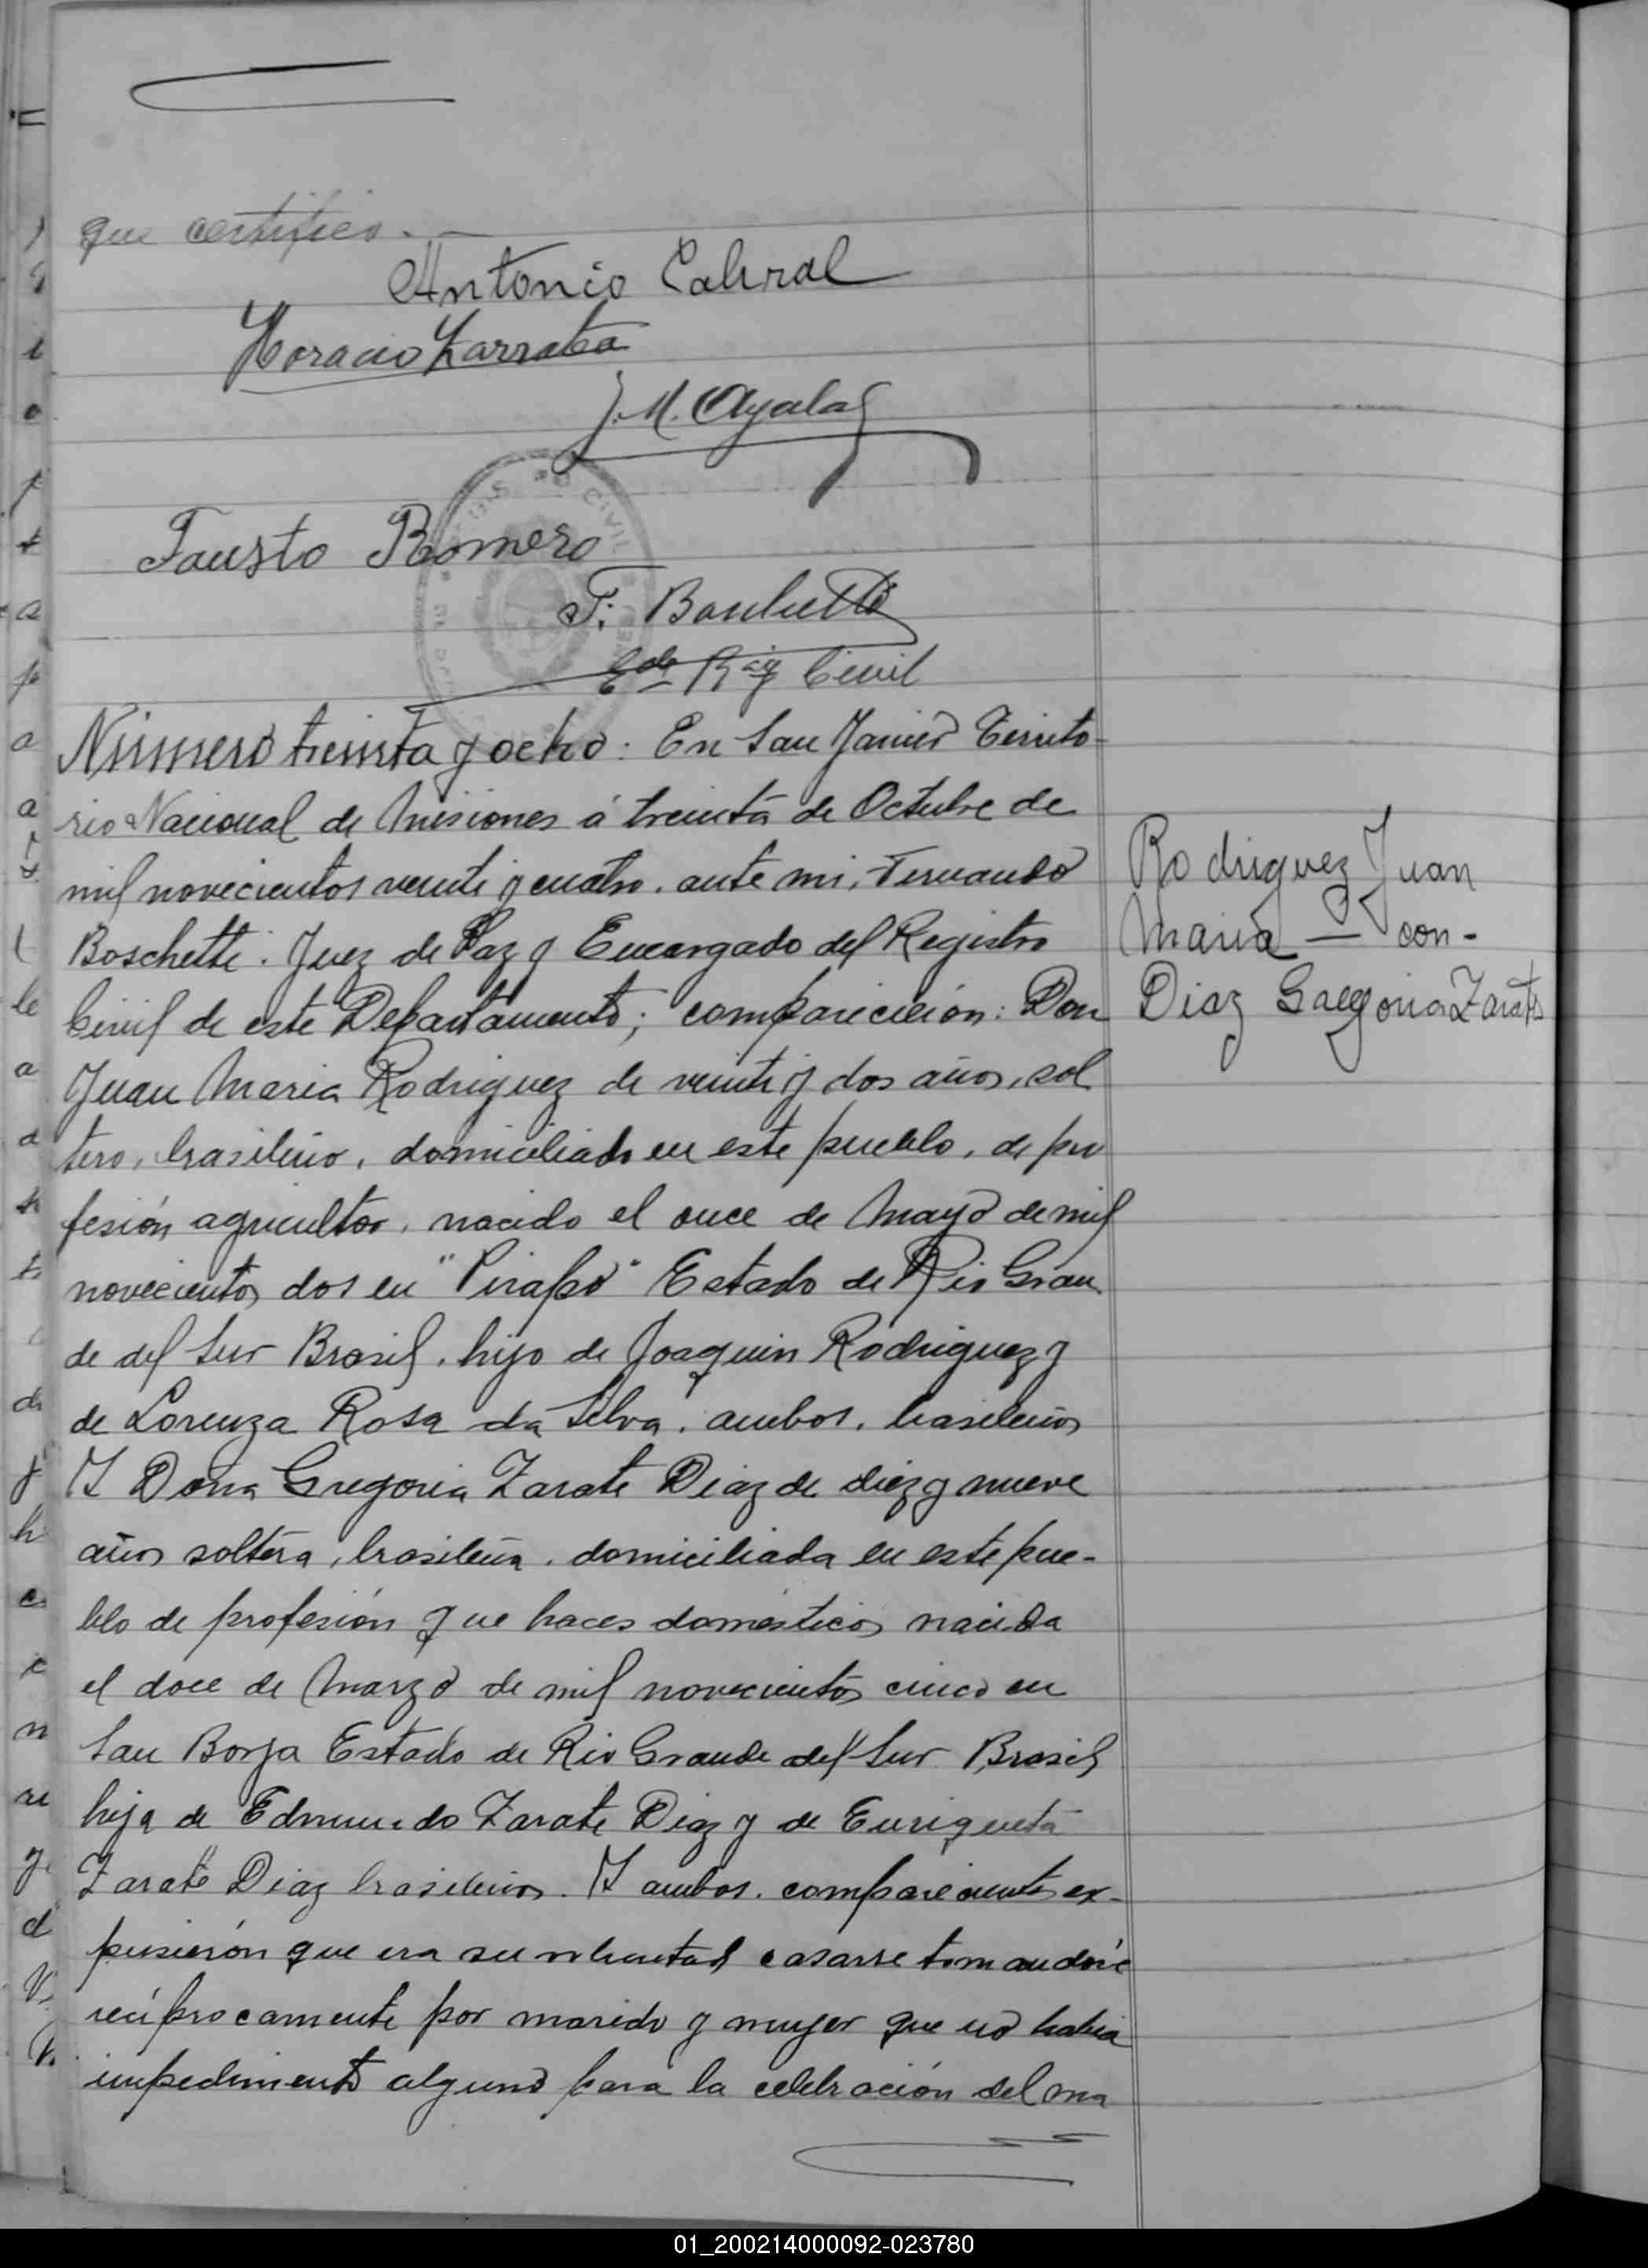 que certifico. —
Antonio Cabral
Horacio Zarratea
J. M. Ayala
Fausto Romero
F. Boschetti
Edo Rig Civil
Número treinta y ocho: En San Javier Territo-
rio Nacional de Misiones á treinta de Octubre de
mil novecientos veinte y cuatro. ante mi, Fernando
Boschetti. Juez de Paz y Encargado del Registro
Civil de este Departamento; comparecieron: Don
Juan Maria Rodriguez de veinte y dos años, sol
tero, brasileño, domiciliado en este pueblo, de pro
fesión agricultor, nacido el once de Mayo de mil
novecientos dos en "Pirapó" Estado de Rio Gran
de del Sur Brasil, hijo de Joaquin Rodriguez y
de Lorenza Rosa da Silva, ambos, brasileños
Y Doña Gregoria Zarate Diaz de diez y nueve
años soltera, brasileña, domiciliada en este pue-
blo de profesión que haces domésticos nacida
el doce de Marzo de mil novecientos cinco en
San Borja Estado de Rio Grande del Sur Brasil
hija de Edmundo Zarate Diaz y de Enriqueta
Zarate Diaz brasileños. Y ambos comparecientes ex-
pusierón que era su voluntad casarse tomandosé
recíprocamente por marido y mujer que no habia
impedimento alguno para la celebración del ma
Rodriguez Juan
Maria — con-
Diaz Gregoria Zarate
01_200214000092-023780